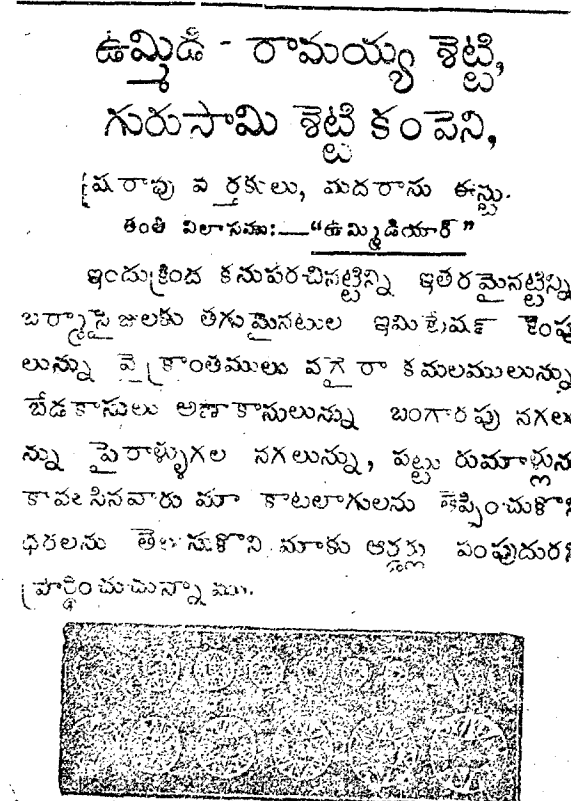 ఉమ్మిడి - రామయ్య శెట్టి,
గురుసామి శెట్టి కంపెని,
(షరాపు వర్తకులు, మదరాసు ఈస్టు.
తంతీ విలాసము:—"ఉమ్మిడియార్"
ఇందుక్రింద కనుపరచినట్టిన్ని ఇతరమైనట్టిన్ని
బర్మాసైజులకు తగుమైనటుల ఇమిటేషణ్ కెంపు
లున్ను వైక్రాంతములు వగైరా కమలములున్ను
బేడకాసులు అణాకాసులున్ను బంగారపు నగలు
న్ను పైరాళ్ళుగల నగలున్ను, పట్టు రుమాళ్లున
కావలసినవారు మా కాటలాగులను తెప్పించుకొని
ధరలను తెలుసుకొని మాకు ఆర్డర్లు పంపుదురని
ప్రార్థించుచున్నాము.